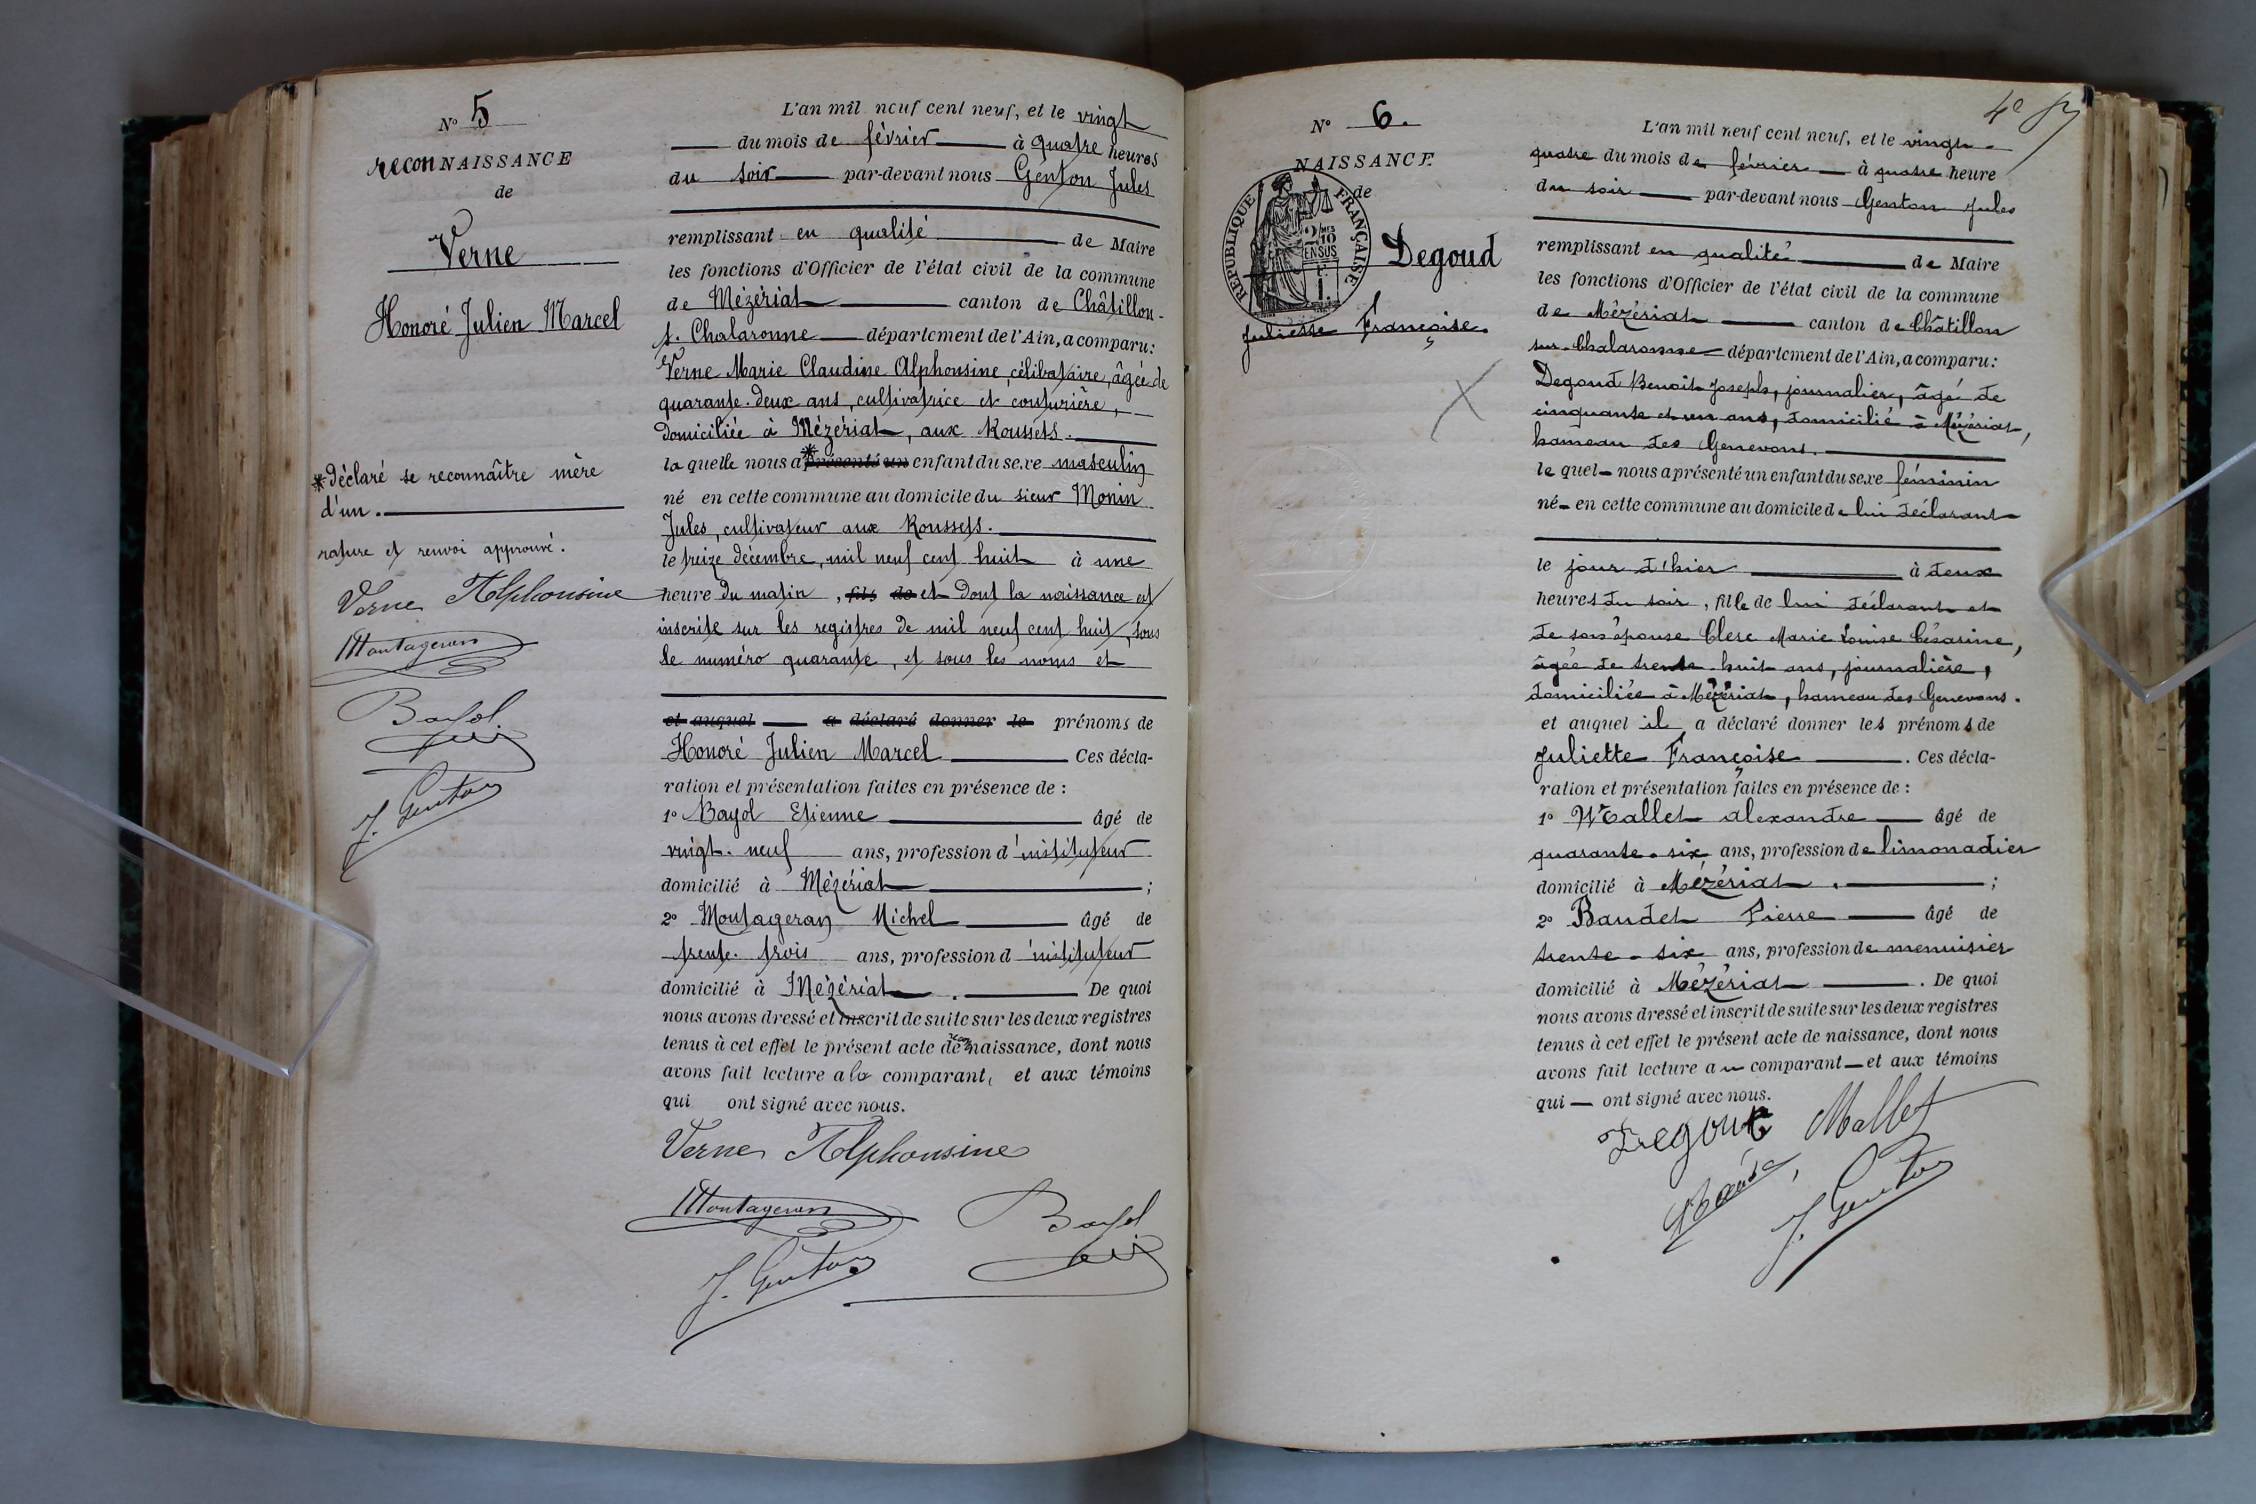 N° 5
reconNAISSANCE
de
Verne
Honoré Julien Marcel
*déclaré se reconnaître mère
d'un.
rature et renvoi approuvé.
Verne Alphonsine
Montageran
Bayol
J. Genton
L'an mil neuf cent neuf, et le vingt
du mois de février à quatre heures
du soir par-devant nous Genton Jules
remplissant en qualité de Maire
les fonctions d'Officier de l'état civil de la commune
de Mézériat canton de Châtillon-
s. Chalaronne département de l'Ain, a comparu:
Verne Marie Claudine Alphonsine, célibataire, âgée de
quarante-deux ans, cultivatrice et couturière,
domiciliée à Mézériat, aux Roussets.
la quelle nous a * présenté un enfant du sexe masculin
né en cette commune au domicile du sieur Monin
Jules, cultivateur aux Roussets.
le treize décembre, mil neuf cent huit à une
heure du matin, fils de et dont la naissance est
inscrite sur les registres de mil neuf cent huit, sous
le numéro quarante, et sous les noms et
et auquel a déclaré donner le prénoms de
Honoré Julien Marcel Ces décla-
ration et présentation faites en présence de :
1° Bayol Etienne âgé de
vingt-neuf ans, profession d'instituteur
domicilié à Mézériat ;
2° Montageran Michel âgé de
trente-trois ans, profession d'instituteur
domicilié à Mézériat. De quoi
nous avons dressé et inscrit de suite sur les deux registres
tenus à cet effet le présent acte de reconnaissance, dont nous
avons fait lecture a la comparante et aux témoins
qui ont signé avec nous.
Verne Alphonsine
Montageran
Bayol
J. Genton
4e
N° 6.
NAISSANCE
de
REPUBLIQUE FRANÇAISE
2/10 EN SUS
Degoud
Juliette Françoise.
L'an mil neuf cent neuf, et le vingt-
quatre du mois de février à quatre heure
du soir par-devant nous Genton Jules
remplissant en qualité de Maire
les fonctions d'Officier de l'état civil de la commune
de Mézériat canton de Châtillon
sur-Chalaronne département de l'Ain, a comparu:
Degoud Benoit Joseph, journalier, âgé de
cinquante et un ans, domicilié à Mézériat,
hameau des Genevons.
le quel nous a présenté un enfant du sexe féminin
né en cette commune au domicile de lui déclarant
le jour d'hier à deux
heures du soir, fille de lui déclarant et
de son épouse Clerc Marie Louise Césarine,
âgée de trente-huit ans, journalière,
domiciliée à Mézériat, hameau des Genevons.
et auquel il a déclaré donner les prénoms de
Juliette Françoise. Ces décla-
ration et présentation faites en présence de :
1° Mallet Alexandre âgé de
quarante-six ans, profession de limonadier
domicilié à Mézériat. ;
2° Baudet Pierre âgé de
trente-six ans, profession de menuisier
domicilié à Mézériat. De quoi
nous avons dressé et inscrit de suite sur les deux registres
tenus à cet effet le présent acte de naissance, dont nous
avons fait lecture au comparant et aux témoins
qui ont signé avec nous.
Degoud Mallet
J. Genton